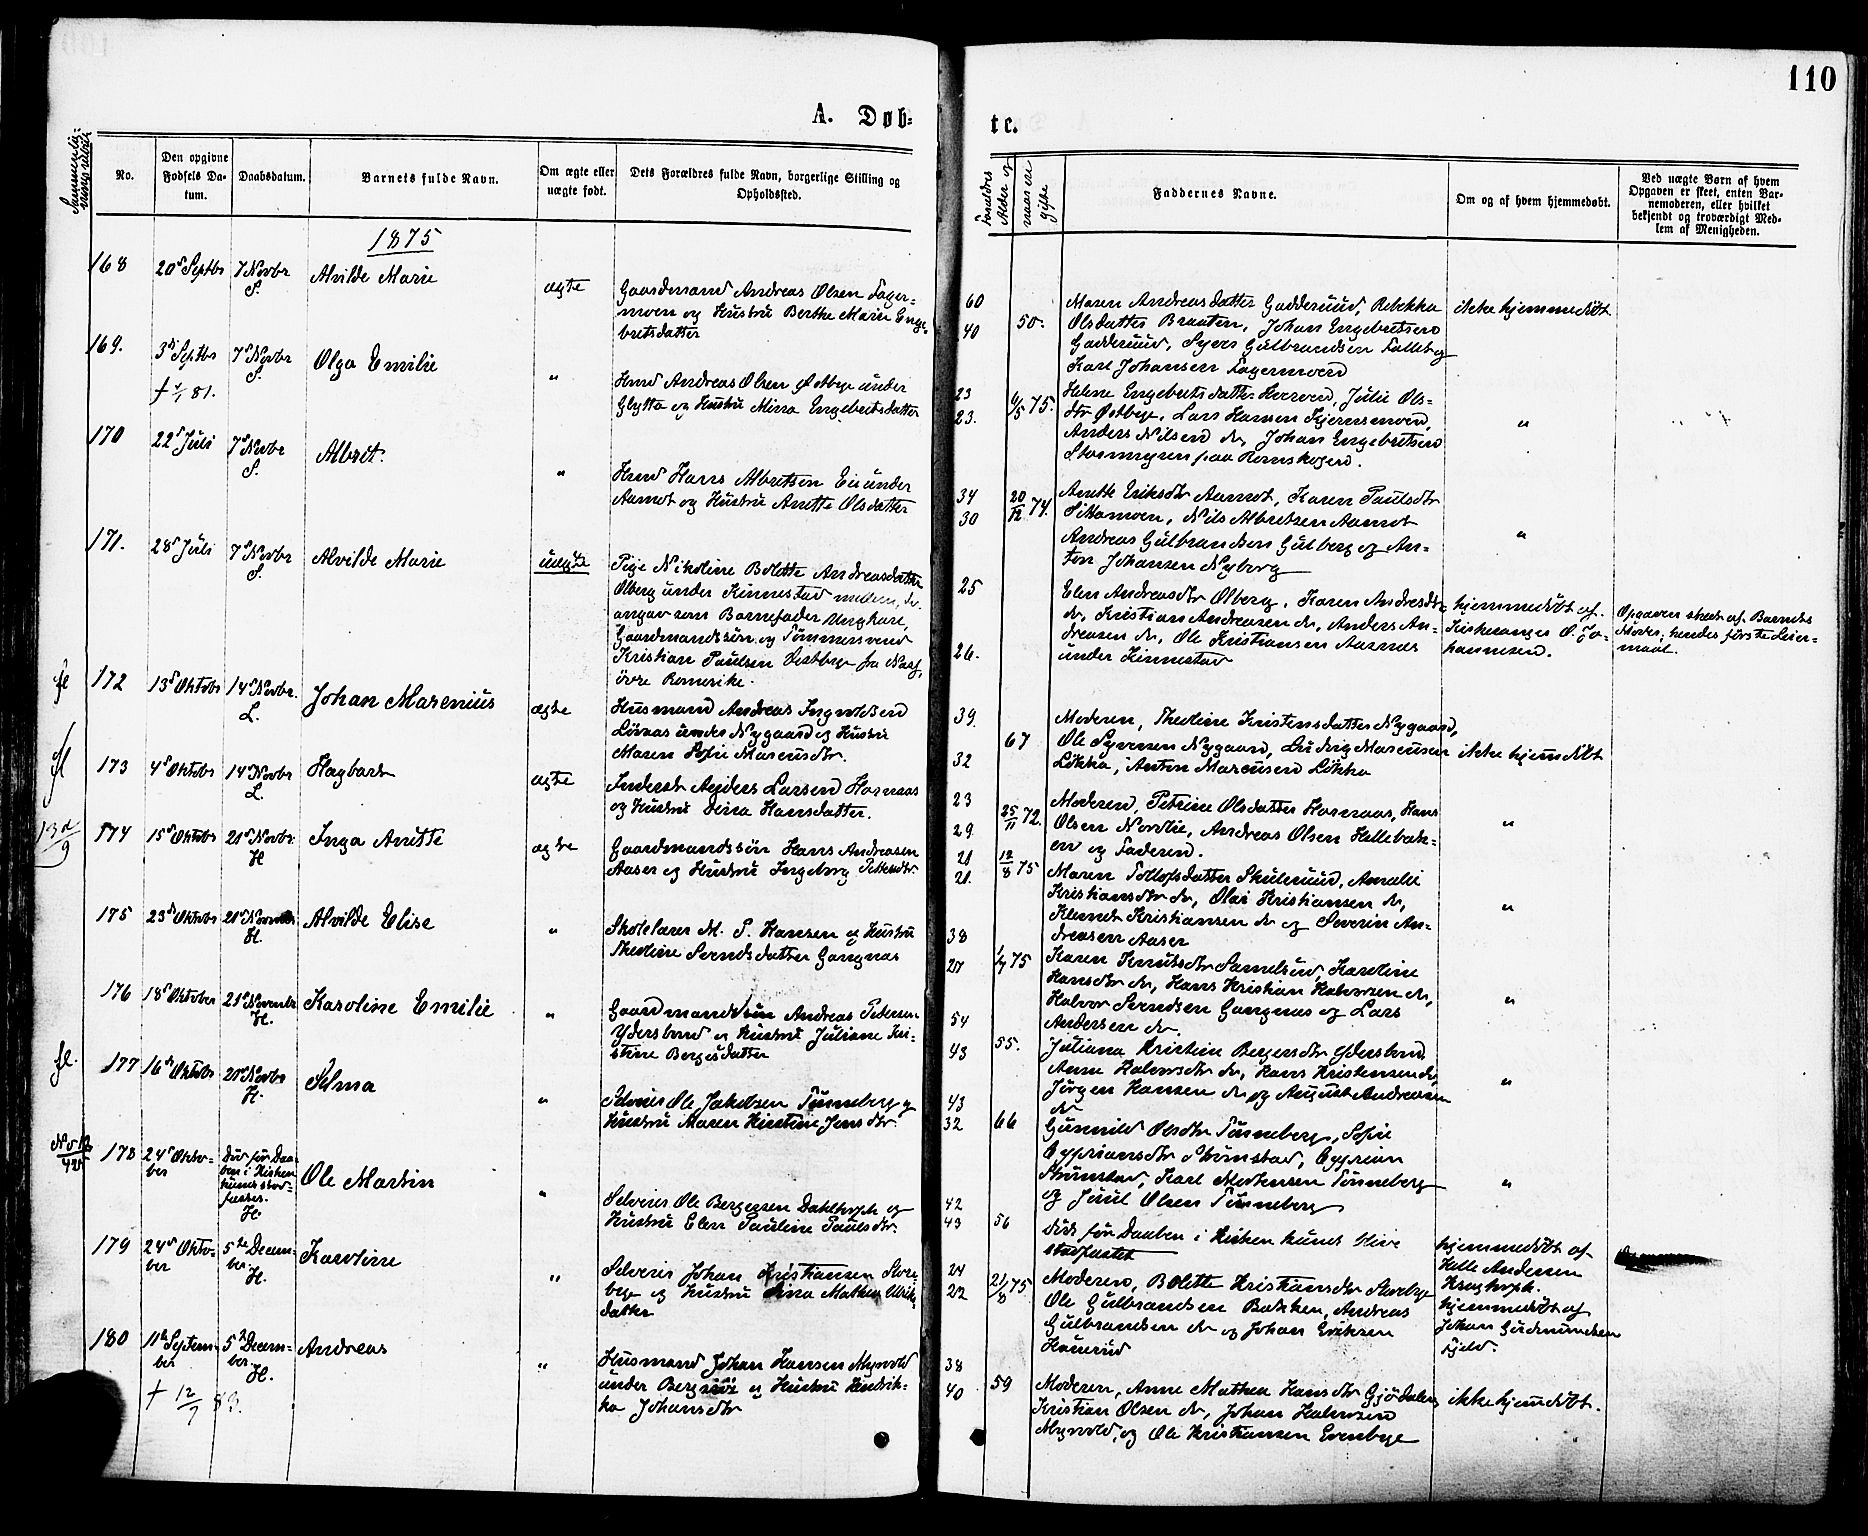 110
A. Døb=
te.
Sammenlig=
No.
Den opgivne
Fødsels Da=
tum.
Daabsdatum.
Barnets fulde Navn.
Om ægte eller
uægte født.
Dets Forældres fulde Navn, borgerlige Stilling og
Opholdssted.
Forældres
Alder og
naar re
gifte
Faddernes Navne.
Om og af hvem hjemmedøbt.
Ved uægte Børn af hvem
Opgaven er skeet, enten Bar-
nemoderen, eller hvilket
bekjendt og troværdigt Med-
lem af Menigheden.
1875
168
20d Septbr
7 Novbr
S.
Alvilde Marie
ægte
Gaardmand Andreas Olsen Fager=
moen og Hustru Berthe Marie Enge=
bretsdatter
60
40
50.
Maren Andreasdatter Gadderuud, Rebekka
Olsdatter Braaten, Johan Engebretsen
Gadderuud, Syver Gulbrandsen Falleb og
Karl Johansen Fagermoen
ikke hjemmedøbt
169.
3d Septbr
7d Novbr
S.
† 4/1 81.
Olga Emilie
"
Hmd Andreas Olsen Østbye under
Glytta og Hustru Mina Engebretsdatter
23
23.
6/5 75.
Helene Engebretsdatter Herven, Julie Ols=
dtr Østbye, Lars Hansen Kjærnsmoen,
Anders Nilsen do, Johan Engebretsen
Stormyren paa Rømskogen.
"
170
22d Juli
7d Novbr
S.
Albret.
"
Hmd Hans Albretsen Eie under
Aamot og Hustru Anette Olsdatter
34
30
20/12 74.
Anette Eriksdtr Aamot, Karen Paulsdtr
Sittamoen, Nils Albretsen Aamot
Andreas Gulbrandsen Gulberg og An=
ton Johansen Nyborg
"
171.
28d Juli
7d Novbr
S.
Alvilde Marie
uægte
Pige Nikoline Bolette Andreasdatter
Olberg under Kinnestad mellem, der
angav som Barnefader Ungkarl,
Gaardmandssøn og Tømmersvend
Kristian Paulsen Østbye fra Næs,
øvre Romerike.
25
26.
Elen Andreasdtr Olberg, Karen Andreasdtr
do, Kristian Andreasen do, Anders An=
dreasen do, Ole Kristiansen Aasnæs
under Kinnestad
hjemmedøbt af
Kirkesanger O. Jo=
hannesen.
Opgaven skeet af Barnets
Moder; hendes første Leier=
maal.
fl
172
13d Oktobr
14d Novbr.
L.
Johan Marenius
ægte
Husmand Andreas Ingvoldsen
Lørnæs under Nygaard og Hustru
Maren Sofie Marcusdtr.
39.
32
67
Moderen, Theoline Kristensdatter Nygaard,
Ole Syversen Nygaard, Ludvig Marcusen
Løkka, Anton Marcusen Løkka
ikke hjemdøbt
fl
173
4d Oktobr
14d Novbr
L.
Hagbart
ægte
Inderst Anders Larsen Hornaas
og Hustru Dina Hansdatter.
23
29.
25/11 72.
Moderen, Petrine Olsdatter Hornaas, Hans
Olsen Nordlie, Andreas Olsen Hellebæk=
en og Faderen.
"
174
15d Oktobr
21d Novbr.
H
Inga Anette
ægte
Gaardmandssøn Hans Andreasen
Aaser og Hustru Ingeborg Pettersdtr.
21
21.
12/8 75
Maren Tollofsdatter Skulerud, Amalie
Kristiansdtr do, Olai Kristiansen do,
Klemet Kristiansen do og Severin An=
dreasen Aaser
"
175
23d Oktobr
21d Novembr
H.
Alvilde Elise
"
Skolelærer M. P. Hansen og Hustru
Theoline Svendsdatter Gangnæs
38
27
1/7 75
Karen Knutsdtr Samelsrud, Karoline
Hansdtr do, Hans Kristian Halvorsen do,
Halvor Svendsen Gangnæs og Lars
Andersen do.
"
176
18d Oktober
21d Novembr
H.
Karoline Emilie
"
Gaardmandssøn Andreas Pedersen
Ydersbond og Hustru Juliane Kri=
stine Bergersdatter
54
43
55.
Juliana Kristine Bergersdtr Ydersbond,
Anne Halvorsdtr do, Hans Kristensen do,
Jørgen Hansen do og August Andreasen
do
"
fl.
177
16d Oktobr
21d Novbr
H.
Selma
"
Selveier Ole Jakobsen Tønneberg og
Hustru Maren Kirstine Jensdtr.
43
32
66
Gunnild Olsdtr Tønneberg, Sofie
Cypriansdtr Strømstad, Cyprian
Strømstad, Karl Mortensen Tønneberg
og Juul Olsen Tønneberg
"
178
24d Okto=
ber
Død før Daa=
ben i Kirken
kunde stad=
fæstes.
H.
Ole Martin
"
Selveier Ole Bergersen Dahltorph og
Hustru Elen Pauline Paulsdtr.
42
43
56
Døde før Daaben i Kirken kunde blive
stadfæstet
hjemmedøbt af
Helle Andersen
Kragtorph.
179
24d Okto=
ber
5te Decem=
ber.
H.
Karoline
"
Selveier Johan Kristiansen Store
bye og Hustru Dina Mathea Ulriks
datter
24
22
21/8 75
Moderen, Bolette Kristiansdtr Storebye
Ole Gulbrandsen Bakken, Andreas
Gulbrandsen do og Johan Eriksen
Haneruud
hjemmedøbt af
Johan Gudmundsen
Fjeld.
180
11te Septem=
ber
5te Decem=
ber.
H.
† 12/7 83.
Andreas
"
Husmand Johan Hansen Myrvold
under Berg og Hustru Hendrik=
ka Johansdtr
38
40
59
Moderen, Anne Mathea Hansdtr Gjødalen,
Kristian Olsen do, Johan Halvorsen
Myrvold, og Ole Kristiansen Evenbye
ikke hjemdøbt.